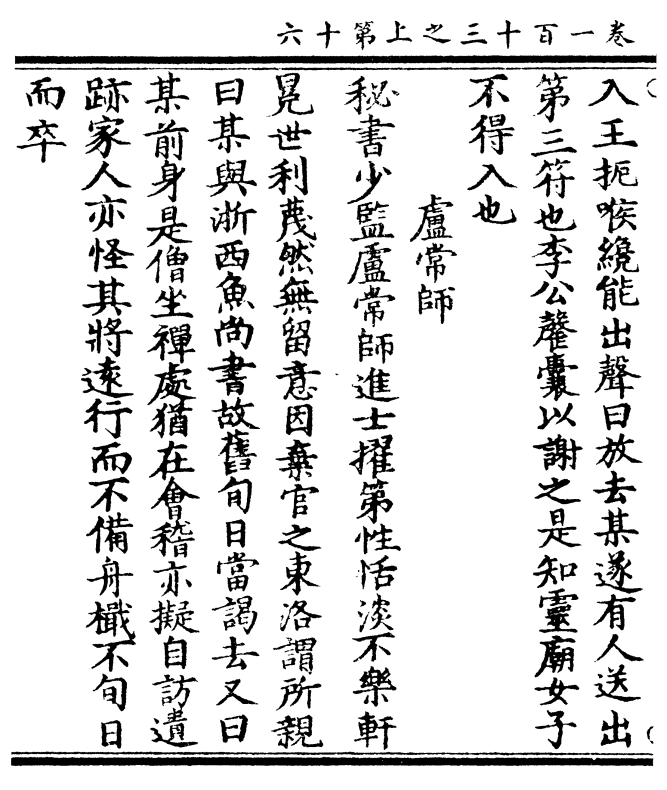 卷一百十三之上第十六
入王扼喉纔能出聲曰放去某遂有人送出
第三符也李公罄囊以謝之是知靈廟女子
不得入也
盧常師
秘書少監盧常師進士擢第性恬淡不樂軒
冕世利蔑然無留意因棄官之東洛謂所親
曰某與浙西魚尚書故舊旬日當謁去又曰
某前身是僧坐禪處猶在會稽亦擬自訪遺
跡家人亦怪其將遠行而不備舟檝不旬日
而卒